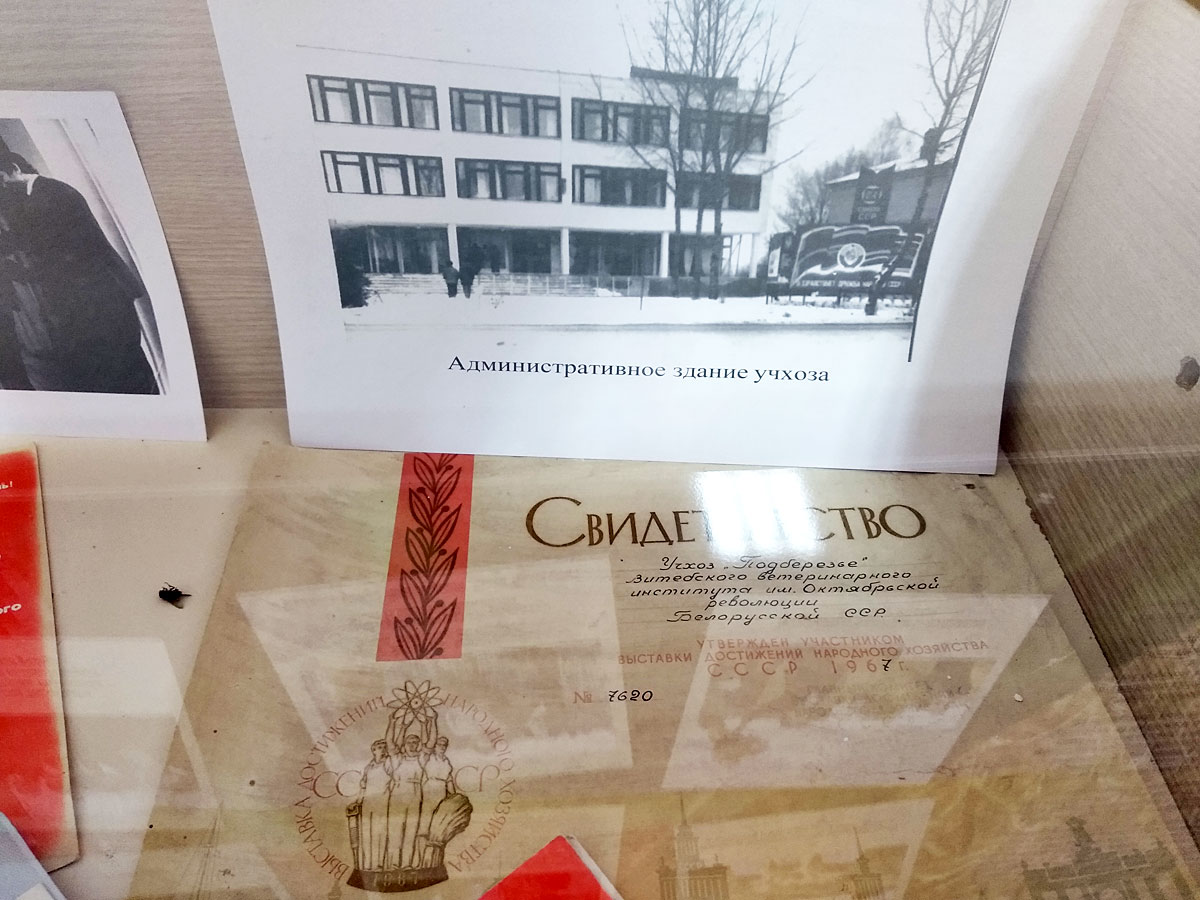 СССР
Административное здание учхоза
Свидет ство
Учхоз „Подберезье"
Витебского ветеринарного
института им. Октябрьской
революции
Белорусской ССР
УТВЕРЖДЕН УЧАСТНИКОМ
ВЫСТАВКИ ДОСТИЖЕНИЙ НАРОДНОГО ХОЗЯЙСТВА
СССР 1967 г.
№ 7620
ВЫСТАВКА ДОСТИЖЕНИЙ НАРОДНОГО ХОЗЯЙСТВА
СССР
1967